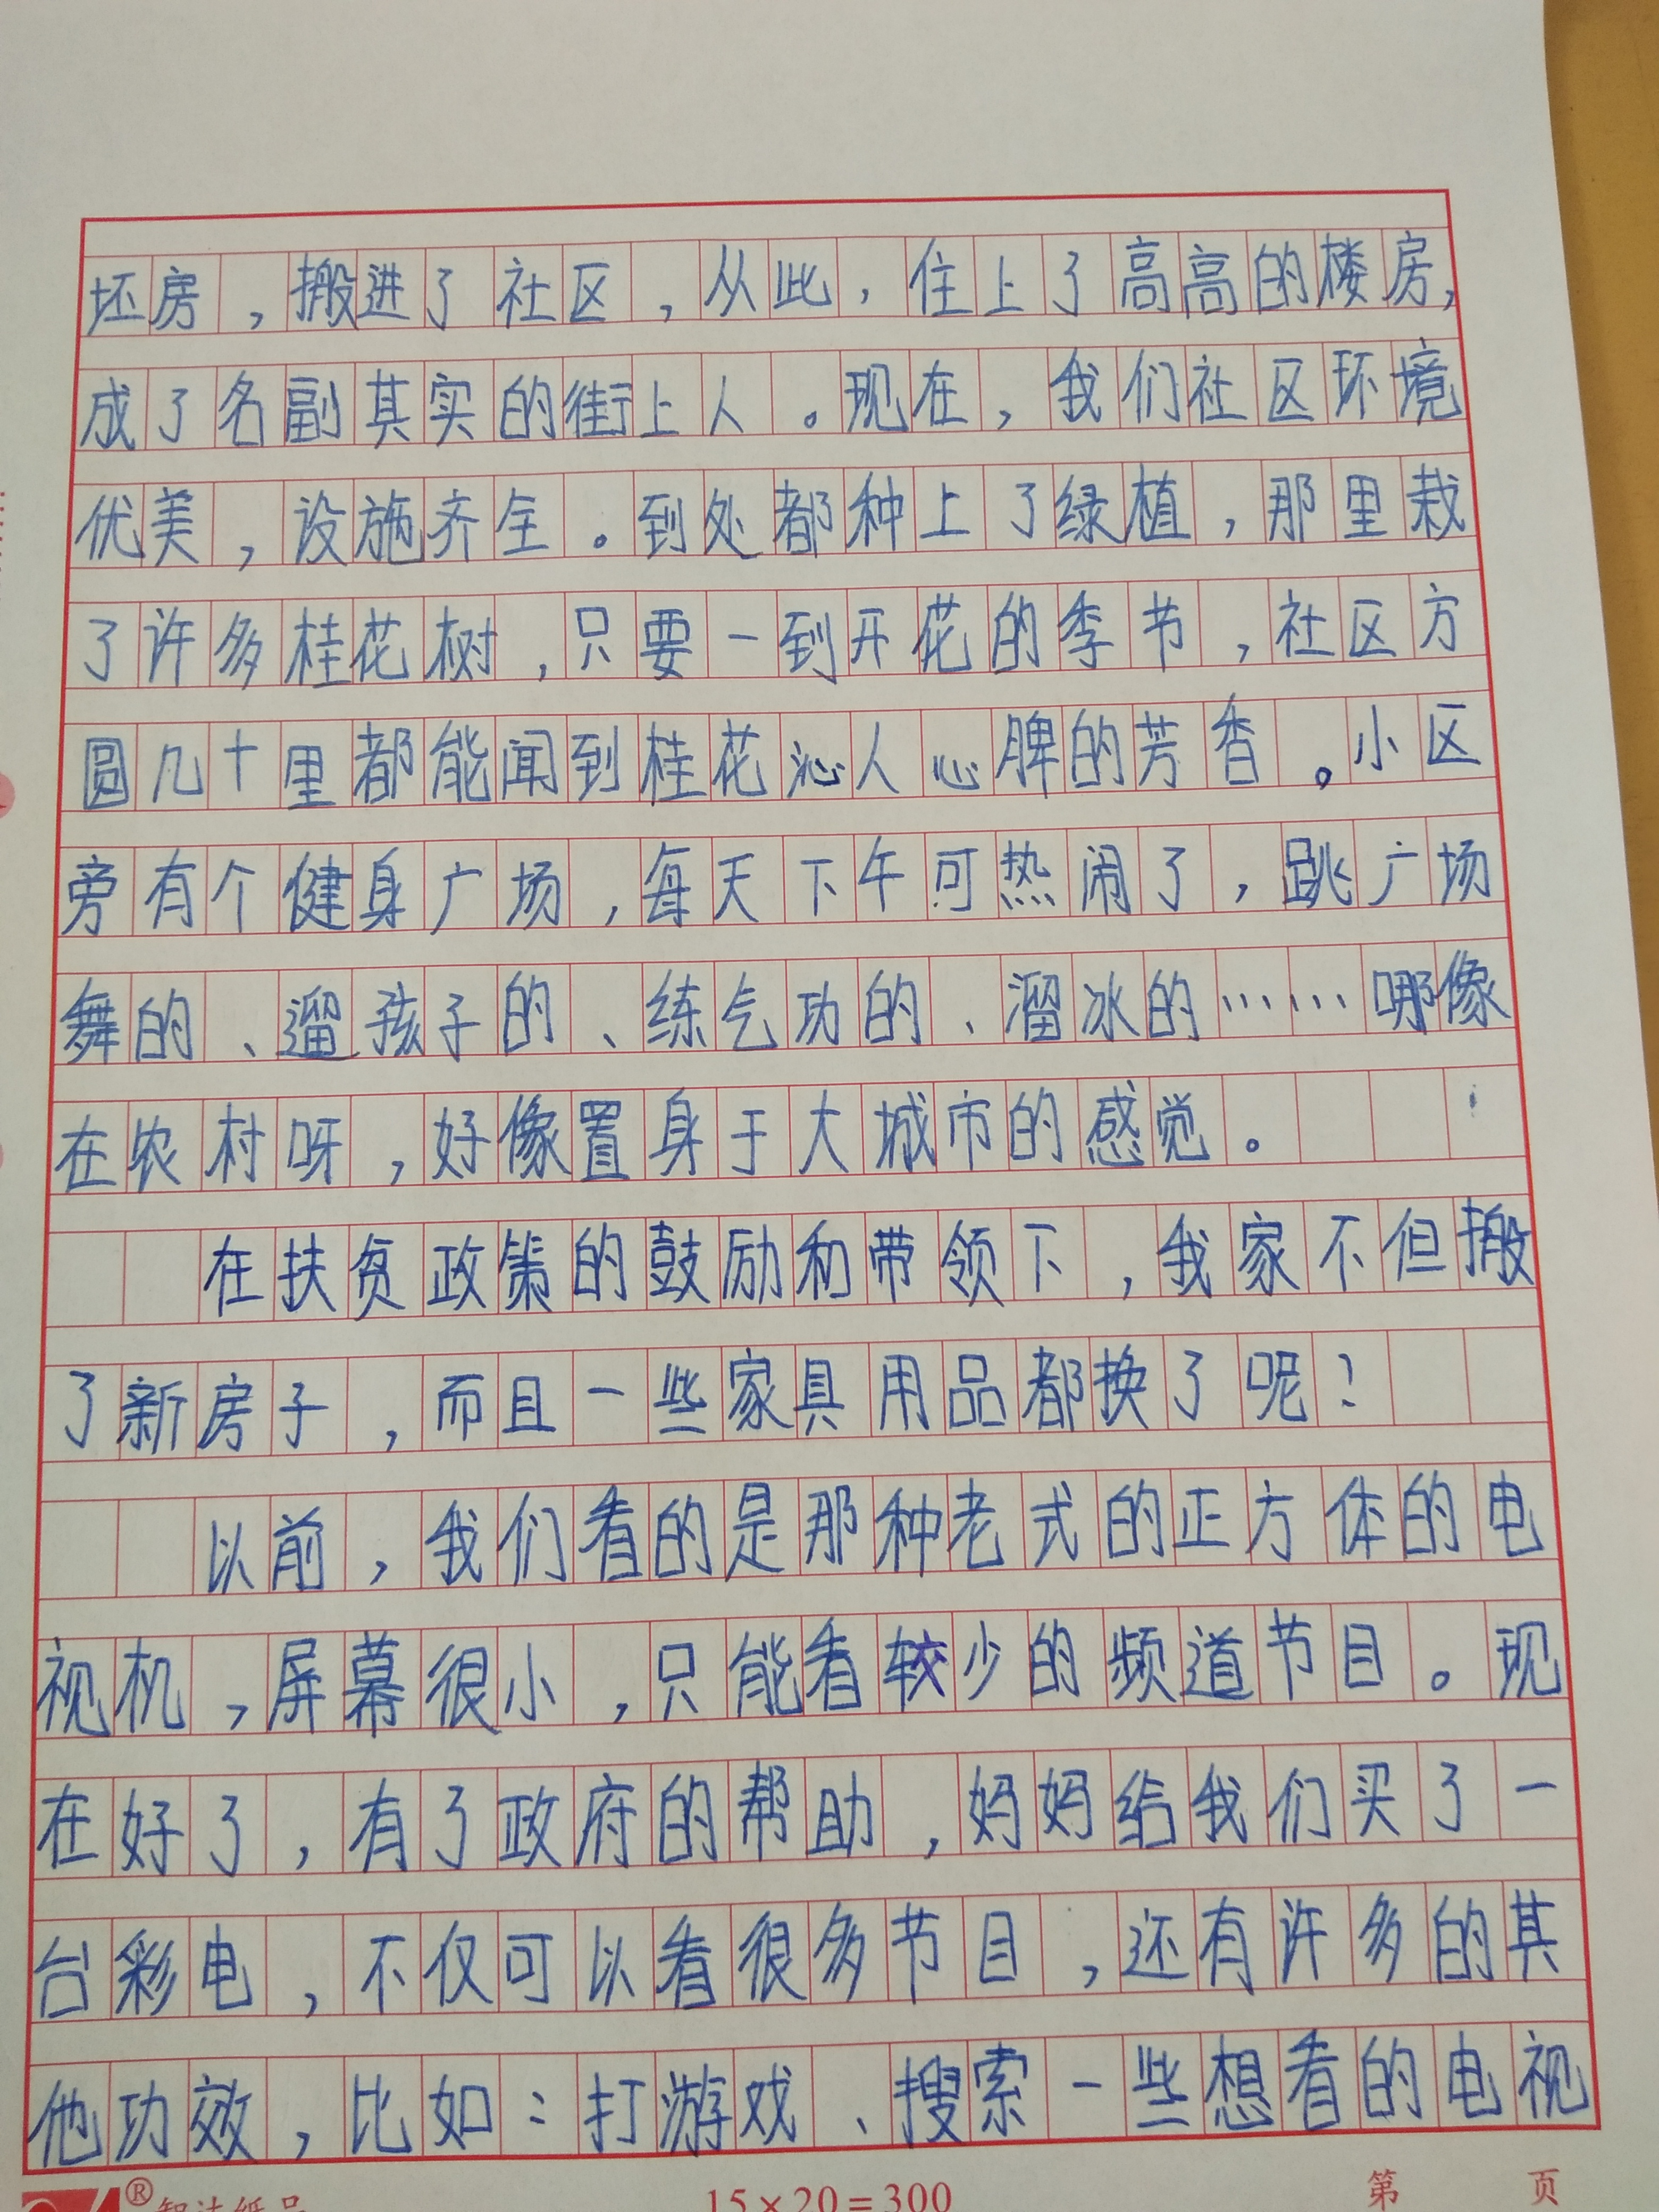 坯房，搬进了社区，从此，住上了高高的楼房，
成了名副其实的街上人。现在，我们社区环境
优美，设施齐全。到处都种上了绿植，那里栽
了许多桂花树，只要一到开花的季节，社区方
圆几十里都能闻到桂花沁人心脾的芳香。小区
旁有个健身广场，每天下午可热闹了，跳广场
舞的、遛孩子的、练气功的、溜冰的……哪像
在农村呀，好像置身于大城市的感觉。
在扶贫政策的鼓励和带领下，我家不但搬
了新房子，而且一些家具用品都换了呢！
以前，我们看的是那种老式的正方体的电
视机，屏幕很小，只能看较少的频道节目。现
在好了，有了政府的帮助，妈妈给我们买了一
台彩电，不仅可以看很多节目，还有许多的其
他功效，比如：打游戏、搜索一些想看的电视
15×20=300
第 页